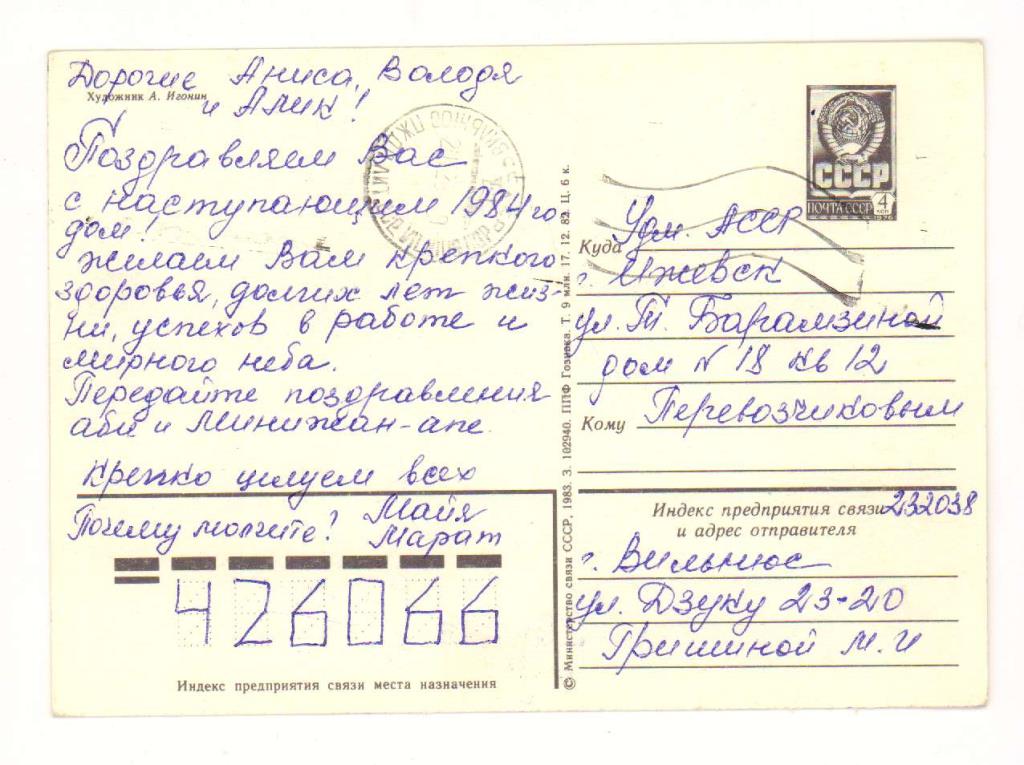 Дорогие Аниса, Володя
Художник А. Игонин
и Алик!
Поздравляем Вас
с наступающим 1984 го
дом!
желаем Вам крепкого
здоровья, долгих лет жиз-
ни, успехов в работе и
мирного неба.
Передайте поздравления
аби и Минижан-апе.
Крепко целуем всех
Почему молчите? Майя
Марат
426066
Индекс предприятия связи места назначения
© Министерство связи СССР, 1983. З. 102940. ППФ Гознака. Т. 9 млн. 17. 12. 82. Ц. 6 к.
СССР
ПОЧТА СССР
4
коп
1976
Куда Удм. АССР
г. Ижевск
ул. Т. Барамзиной
дом № 18 кв 12
Кому Перевозчиковым
Индекс предприятия связи 232038
и адрес отправителя
г. Вильнюс
ул. Дзуку 23-20
Гришиной М. И